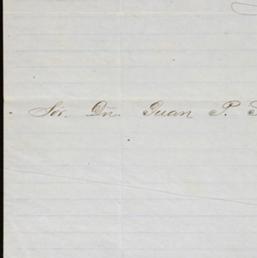 Sor. Dn. Guan P.